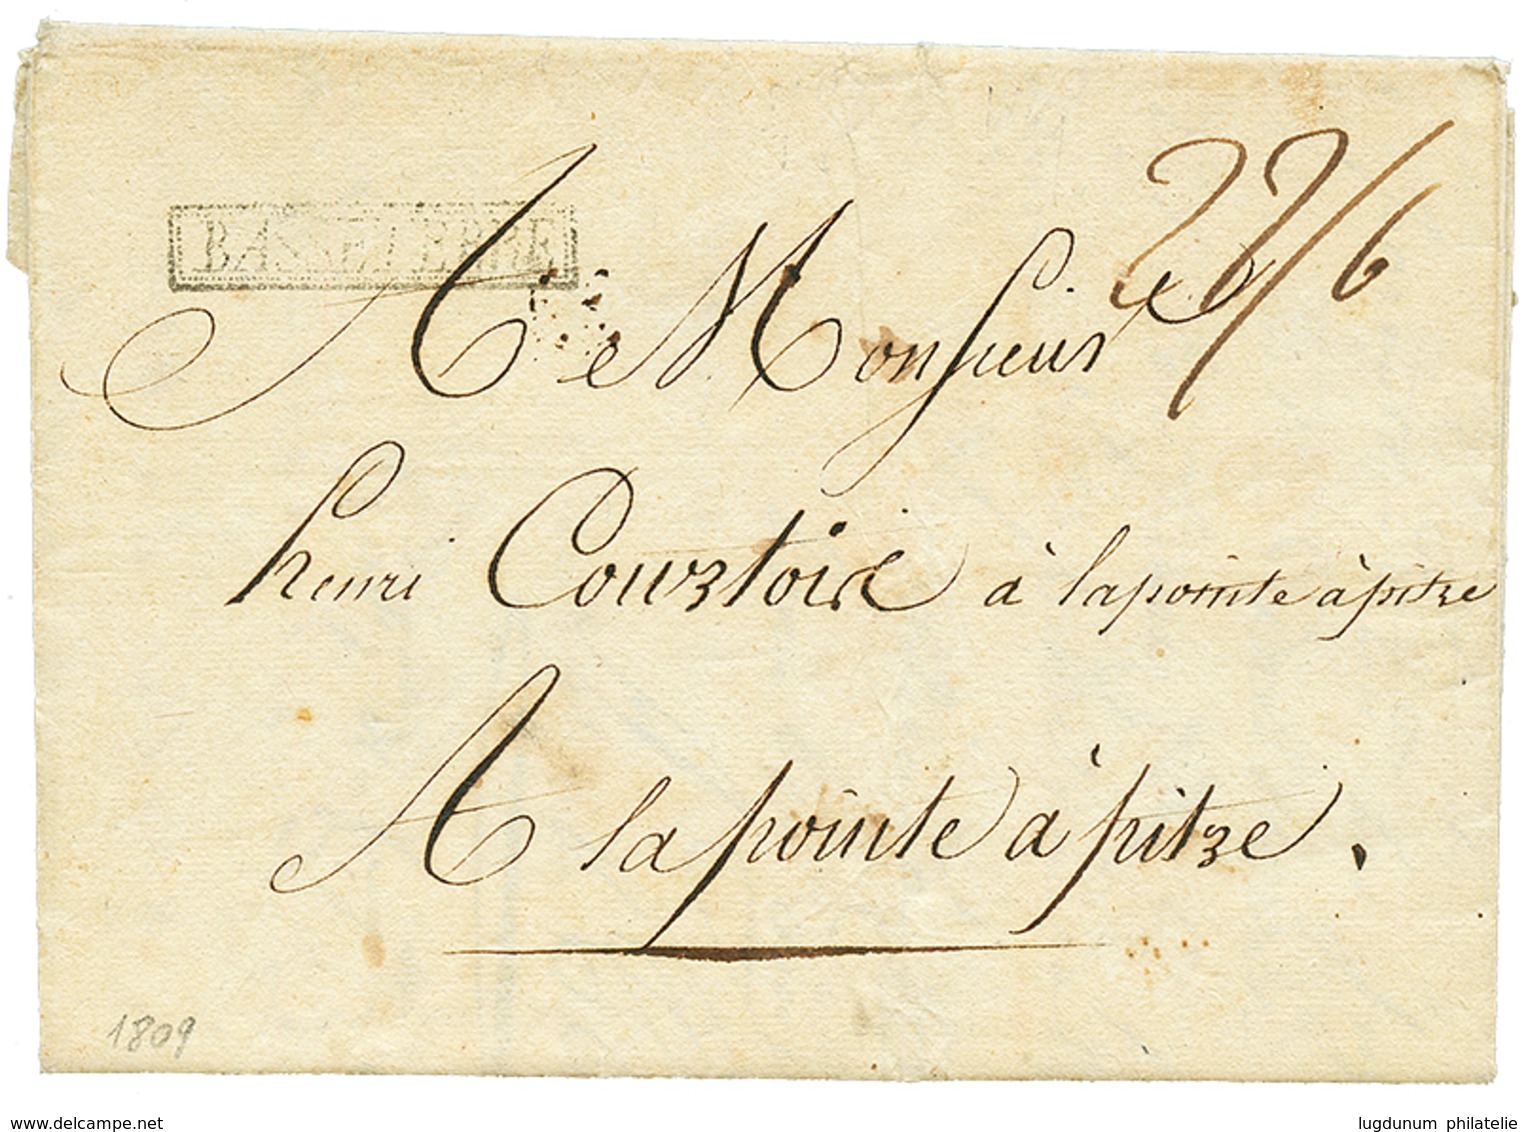 BASSETERRE
22/6
A Monsieur
henri Courtois à lapointe àpitre
A lapointe àpitre.
1809
www.delcampe.net
lugdunum philatelie